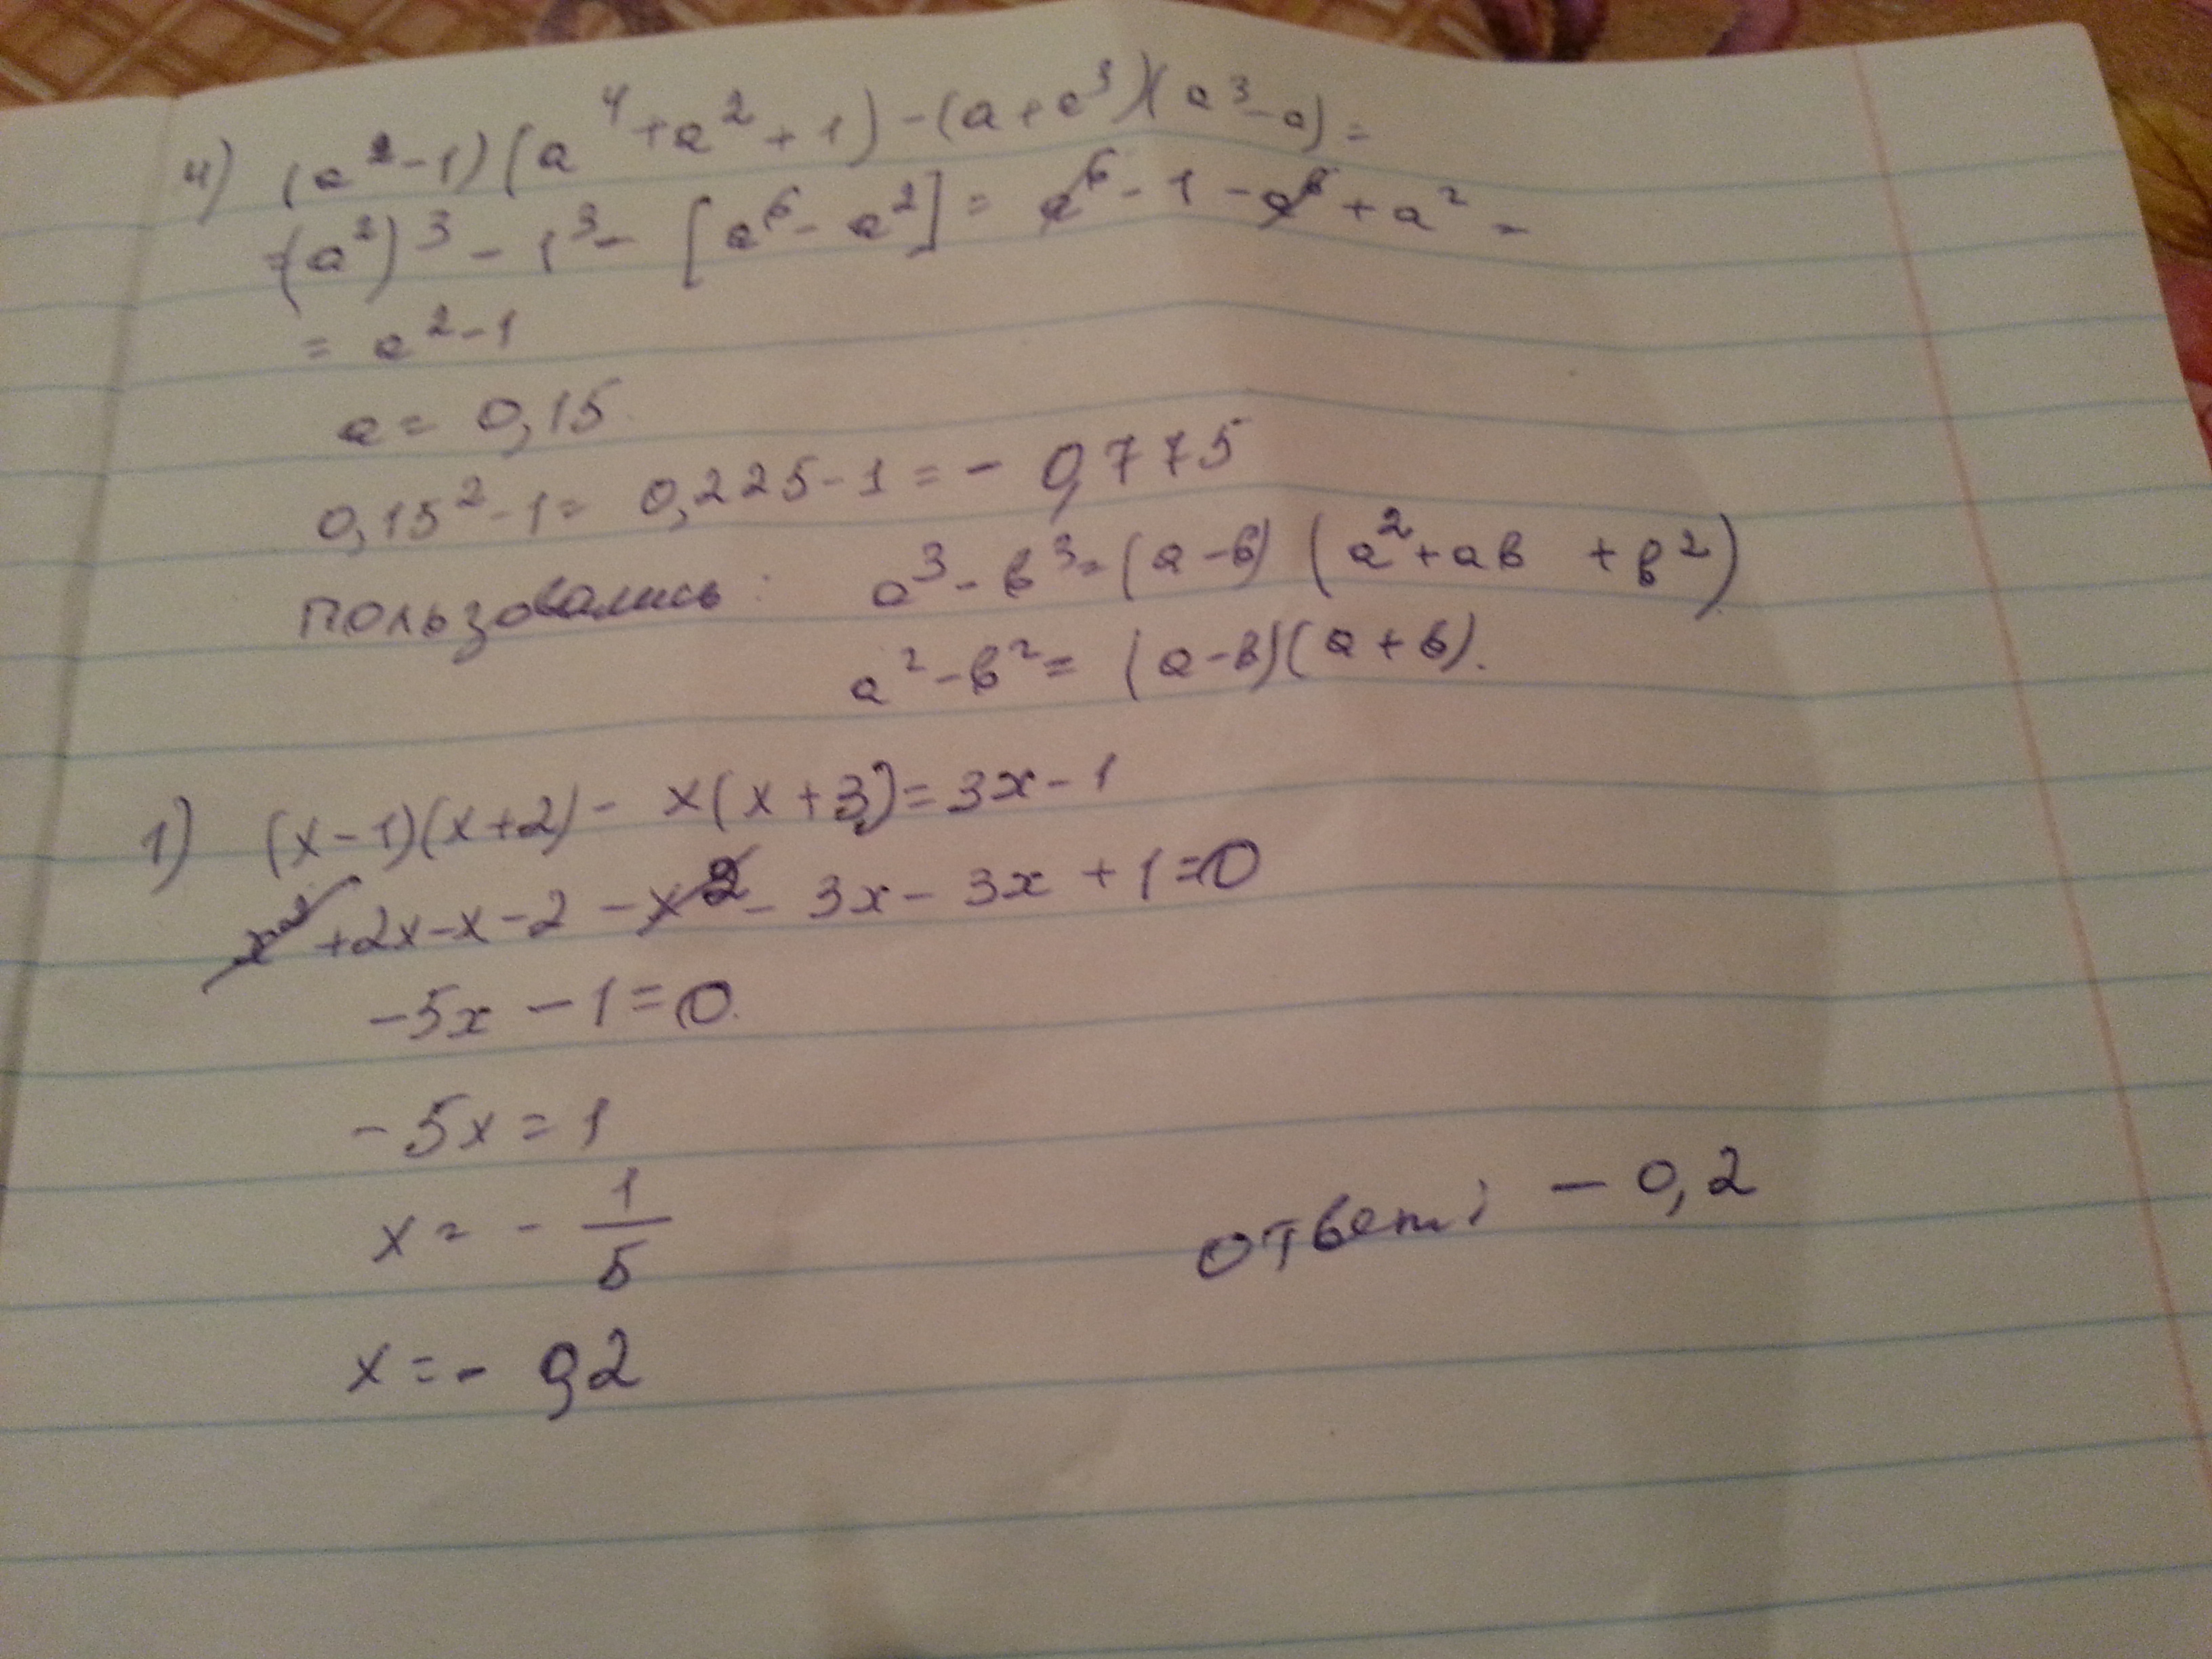 4) (a² - 1)(a⁴ + a² + 1) - (a + a³)(a³ - a) =
= (a²)³ - 1³ - [a⁶ - a²] = a⁶ - 1 - a⁶ + a² =
= a² - 1
a = 0,15
0,15² - 1 = 0,225 - 1 = - 0,775
пользовались: a³ - в³ = (a - в) (a² + aв + в²)
a² - в² = (a - в)(a + в).
1) (x - 1)(x + 2) - x(x + 3) = 3x - 1
x² + 2x - x - 2 - x² - 3x - 3x + 1 = 0
-5x - 1 = 0
-5x = 1
x = - 1/5
ответ: - 0,2
x = - 0,2